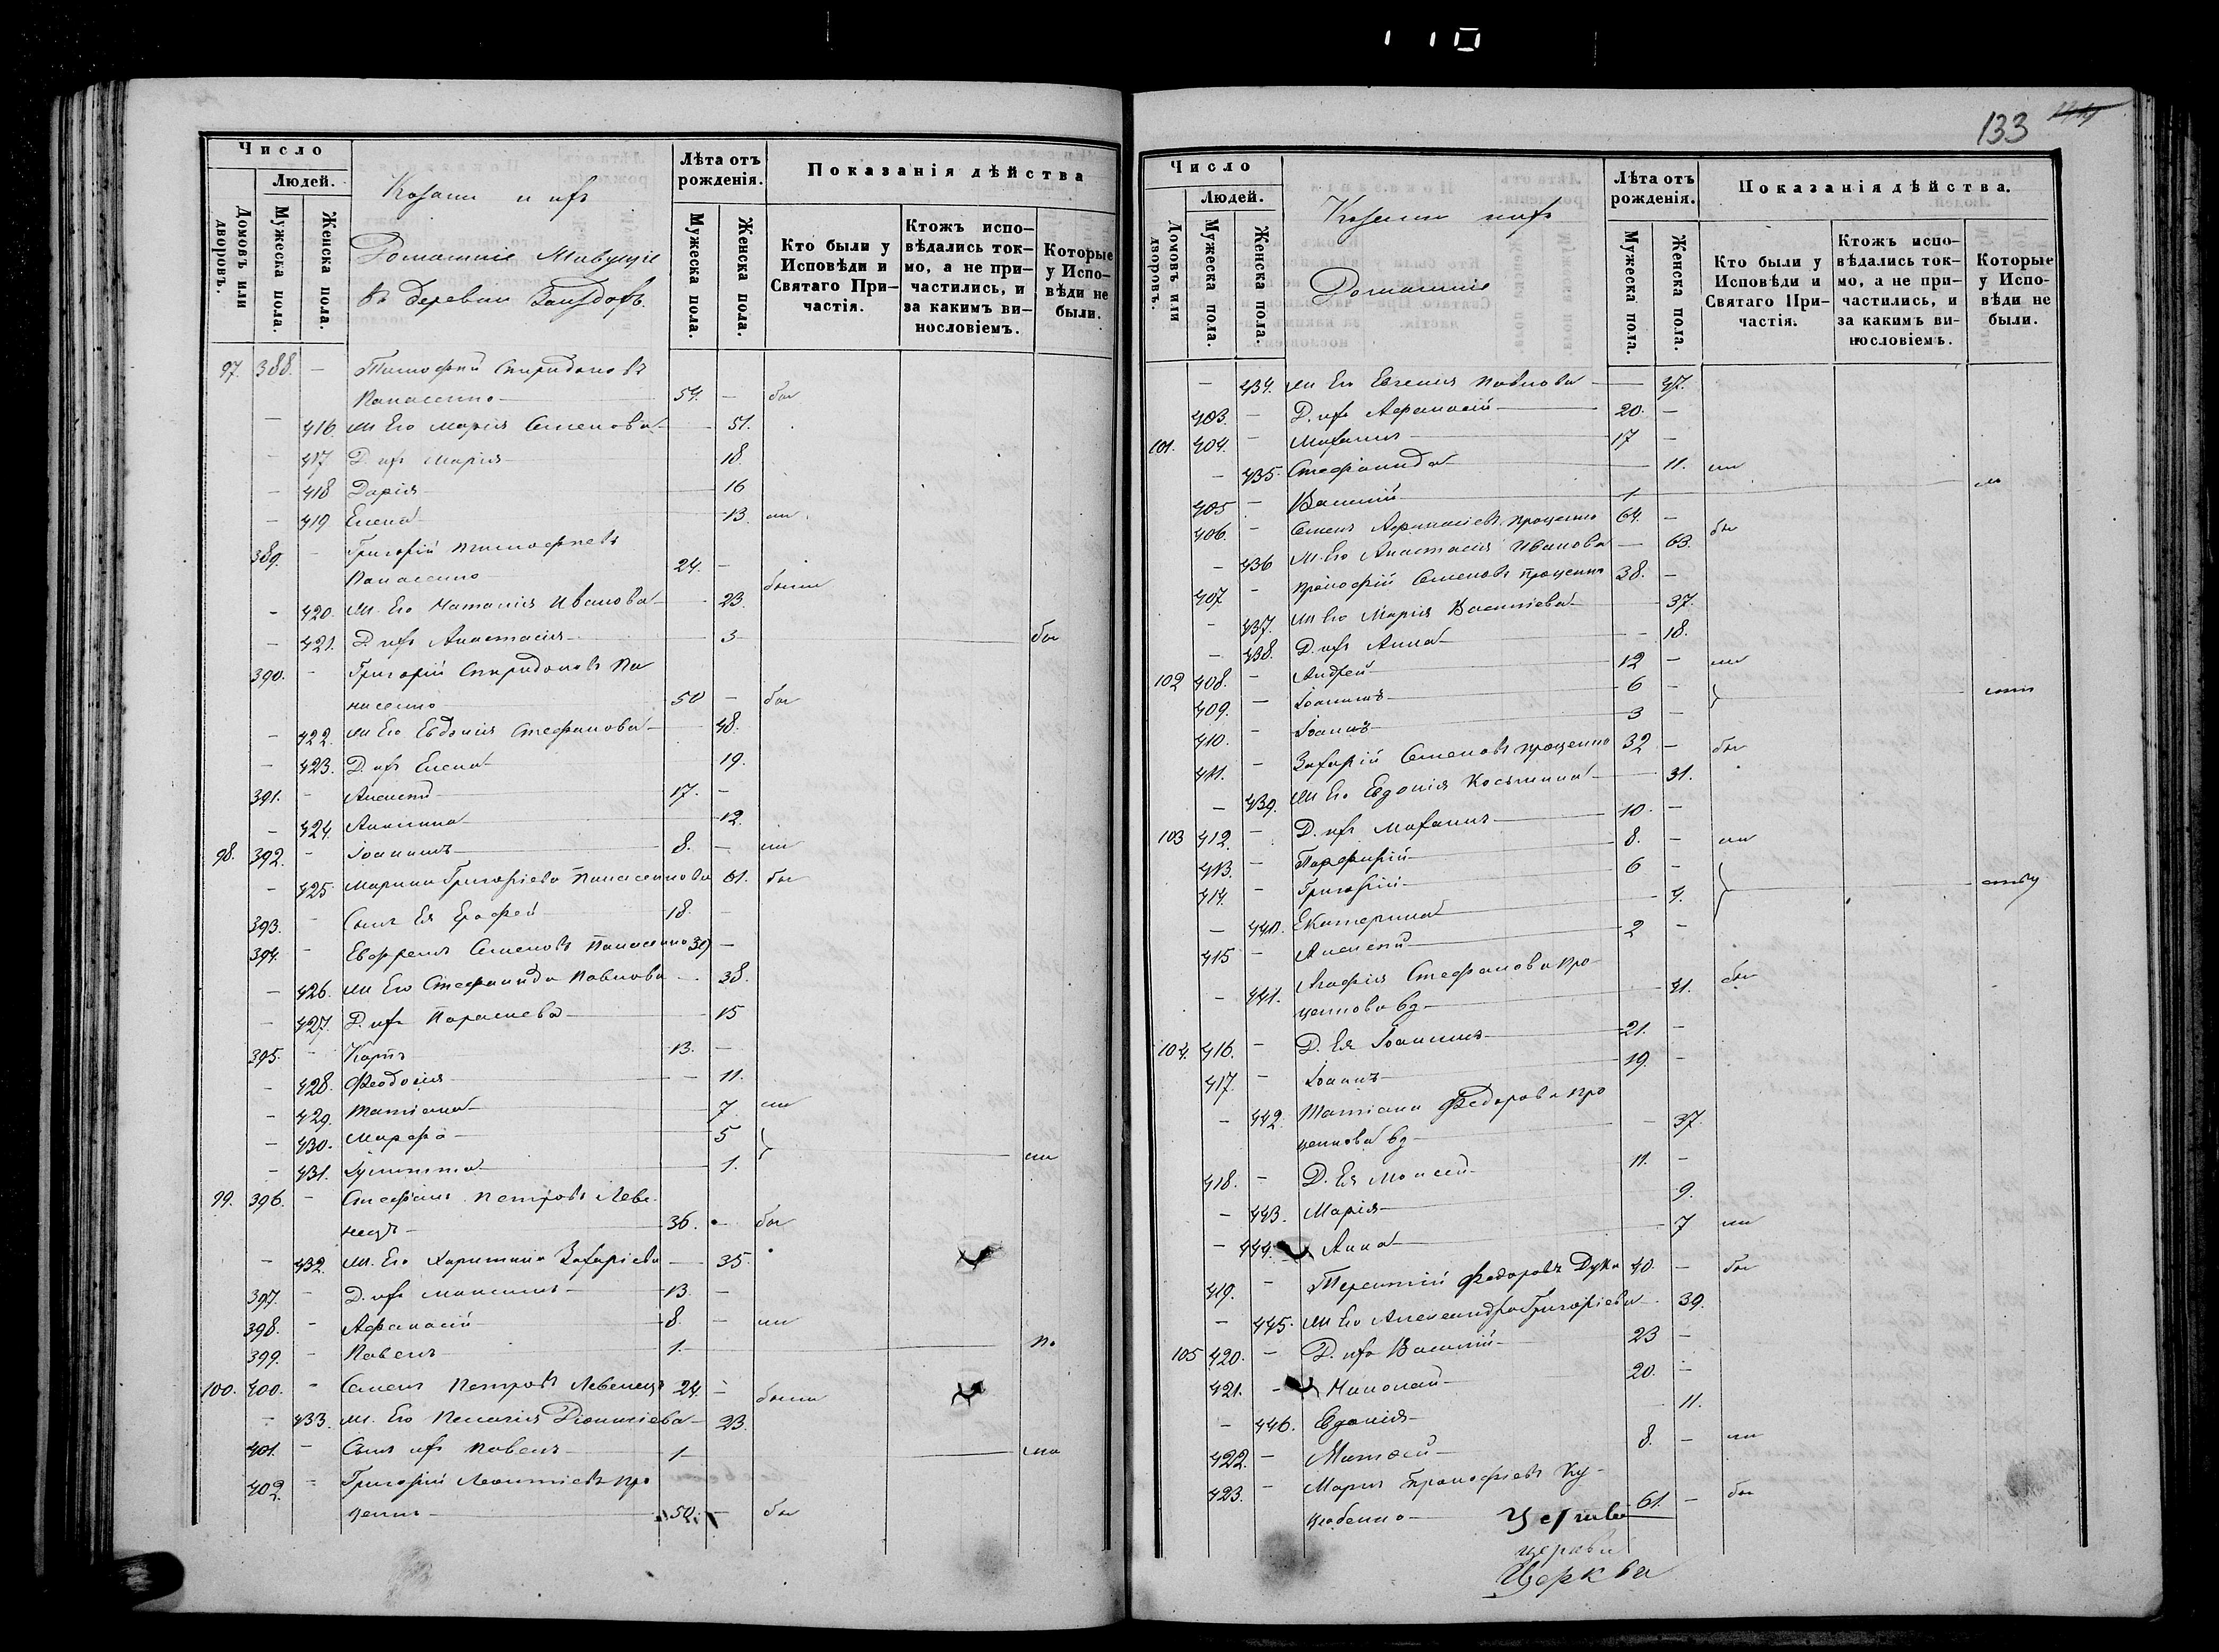 110
Число
Людей.
Домовъ или дворовъ.
Мужеска пола.
Женска пола.
Козаки и ихъ
Домашніе Живущіе
въ деревни
Лѣта отъ рожденія.
Мужеска пола.
Женска пола.
Показанія дѣйства
Кто были у Исповѣди и Святаго Причастія.
Ктожъ исповѣдались токмо, а не причастились, и за какимъ винословіемъ.
Которые у Исповѣди не были.
97. 388. - Тимофей Спиридоновъ
Панасенко 54. -
- 416. Ж Его Марія Семенова 51.
- 417 Д. ихъ Марія 18.
- 418 Дарія 16
- 419 Елена 13.
389. - Григорій Тимофеевъ
Панасенко 24. - были
- 420. Ж. Его Наталія Иванова 23.
- 421. Д ихъ Анастасія 3
390. - Григорій Спиридоновъ Па
насенко 50 -
- 422. Ж Его Евдокія Стефанова 48.
- 423. Д. ихъ Елена 19.
391. - Алексей 17. -
- 424. Акилина 12.
98. 392. - Іоаннъ 8. -
- 425. Марина Григоріева Панасенкова 61.
393. - Сынъ Ея Ерофей 18. -
394. - Евфремъ Семеновъ Панасенко 39 -
- 426. Ж Его Стефанида Павлова 38.
- 427. Д. ихъ Параскева 15
395. - Карпъ 13. -
- 428. Феодосія 11.
- 429. Татіана 7
- 430. Марфа 5
- 431. Іулитта 1.
99. 396. - Стефанъ Петровъ Леве
нецъ 36. -
- 432. Ж. Его Харитина Захаріева 35.
397. - Д. ихъ Максимъ 13. -
398. - Афанасій 8. -
399. - Павелъ 1.
100. 400. - Семенъ Петровъ Левенецъ 24. - были
- 433. Ж. Его Пелагія Діонисіева 23.
401. - Сынъ ихъ Павелъ 1
402. - Григорій Леонтіевъ Про
ценко 50. -
133
Число
Людей.
Домовъ или дворовъ.
Мужеска пола.
Женска пола.
Козаки ихъ
Домашніе
Лѣта отъ рожденія.
Мужеска пола.
Женска пола.
Показанія дѣйства.
Кто были у Исповѣди и Святаго Причастія.
Ктожъ исповѣдались токмо, а не причастились, и за какимъ винословіемъ.
Которые у Исповѣди не были.
- 434. Ж Его Евгенія Павлова 47.
403. - Д. ихъ Афанасій 20. -
101. 404. - 17 -
- 435. Стефанида 11.
405 - Василій 1
406. - Семенъ Афанасіевъ Проценко 64. -
- 436 Ж. Его Анастасія Иванова 63.
407 - Прокофій Семеновъ Проценко 38. -
- 437. Ж Его Марія Василіева 37.
- 438. Д. ихъ Анна 18.
102 408. - Андрей 12 -
409. - Іоаннъ 6 -
410. - Іоаннъ 3 -
411. - Захарій Семеновъ Проценко 32 -
- 439. Ж Его Евдокія Косьмина 31.
103 412. - Д. ихъ 10. -
413. - Порфирій 8. -
414. - Григорій 6 -
- 440. Екатерина 4.
415 - Алексей 2 -
- 441. Агафія Стефанова Про-
ценкова вд 41.
104. 416. - Д. Ея Іоаннъ 21. -
417. - Іоаннъ 19. -
- 442. Татіана Федорова Про
ценкова вд 37.
418. - Д. Ея Моисей 11. -
- 443. Марія 9.
- 444. Анна 7
419. - Терентій Федоровъ Дука 40. -
- 445. Ж Его Александра Григоріева 39.
105 420. - Д. ихъ Василій 23 -
421. - Николай 20. -
- 446. Евдокія 11.
422. - Матвей 8. -
423. - Марко Прокофіевъ Ку-
61. -
церкви
Церква